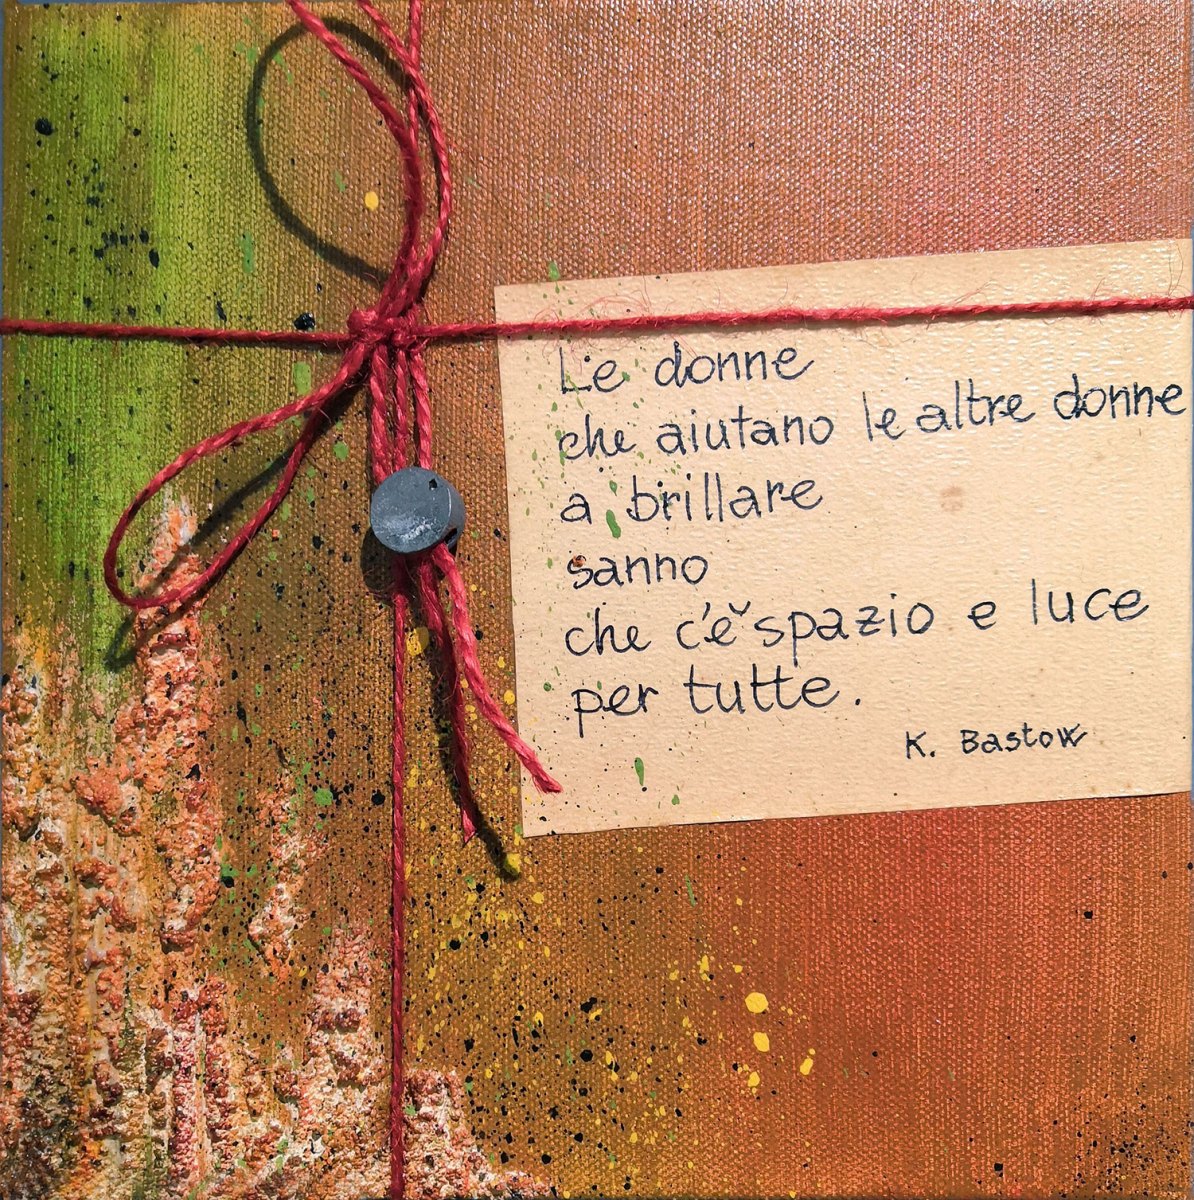 Le donne
che aiutano le altre donne
a brillare
sanno
che c'è spazio e luce
per tutte.
K. Bastow